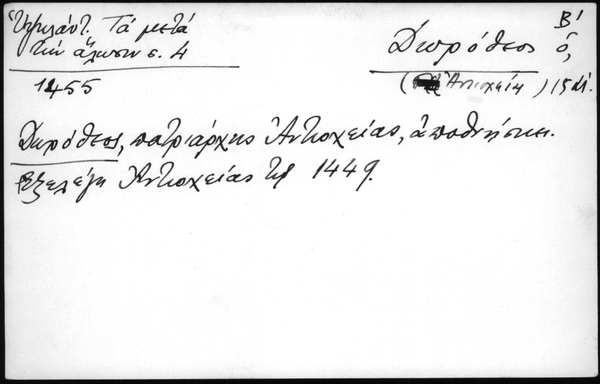 Ὑψηλάντ. Τά μετά
τήν ἅλωσιν σ. 4
1455
Β'
Δωρόθεος ὁ,
(Ἀντιοχείας) 15 αἰ.
Δωρόθεος, πατριάρχης Ἀντιοχείας, ἀποθνήσκει.
Ἐξελέγη Ἀντιοχείας τῷ 1449.